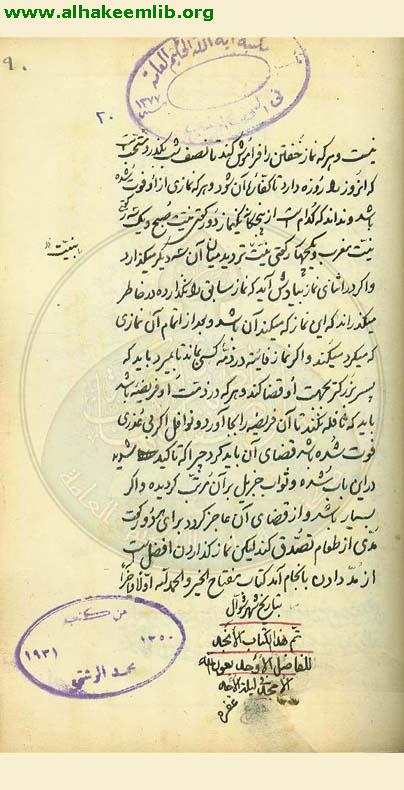 www.alhakeemlib.org
مكتبة آية الله الحكيم العامة
١٣٧٧
٩٠
٢٠
نیست و هر که نماز خفتن را فراموش کند تا نصف شب بگذرد
که آنروز را روزه دارد تا کفارهٔ آن شود و هر که نمازی از او فوت شده
باشد و نداند که کدام است از پنجگانه یکنماز دو رکعتی بنیت صبح و یک سه رکعتی
بنیت مغرب و یکچهار رکعتی بنیت تردید میان آن سه دیگر میگذارد
بنیت
و اگر در اثنای نماز بیادش آید که نماز سابق را نگذارده در خاطر
میگذراند که این نماز که میکند آن باشد و بعد از اتمام آن نمازی
که میکرد میکند و اگر نماز فایته در ذمّه کسی بماند تا بمیرد باید که
پسر بزرگتر بجهت او قضا کند و هر که در ذمت او فریضه باشد
باید که نافله نکند تا آن فریضه را بجا آورد و نوافل اگر بی عذری
فوت شده باشد قضای آن باید کرد چرا که تاکید شدید
در این باب شده و ثواب جزیل بر آن مترتب گردیده و اگر
بسیار باشد و از قضای آن عاجز گردد برای هر دو رکعت
مُدّی از طعام تصدّق کند لیکن نماز گذاردن افضل است
از مُدّ دادن بانجام آمد کتاب مفتاح الخیر و الحمد لله اولا و آخراً
بتاریخ شهر شوال
تم هذا الکتاب
للفاضل الأوحد بعون الله
غفره
من كتب
١٣٥٠
١٩٣١
محمد الرشتي